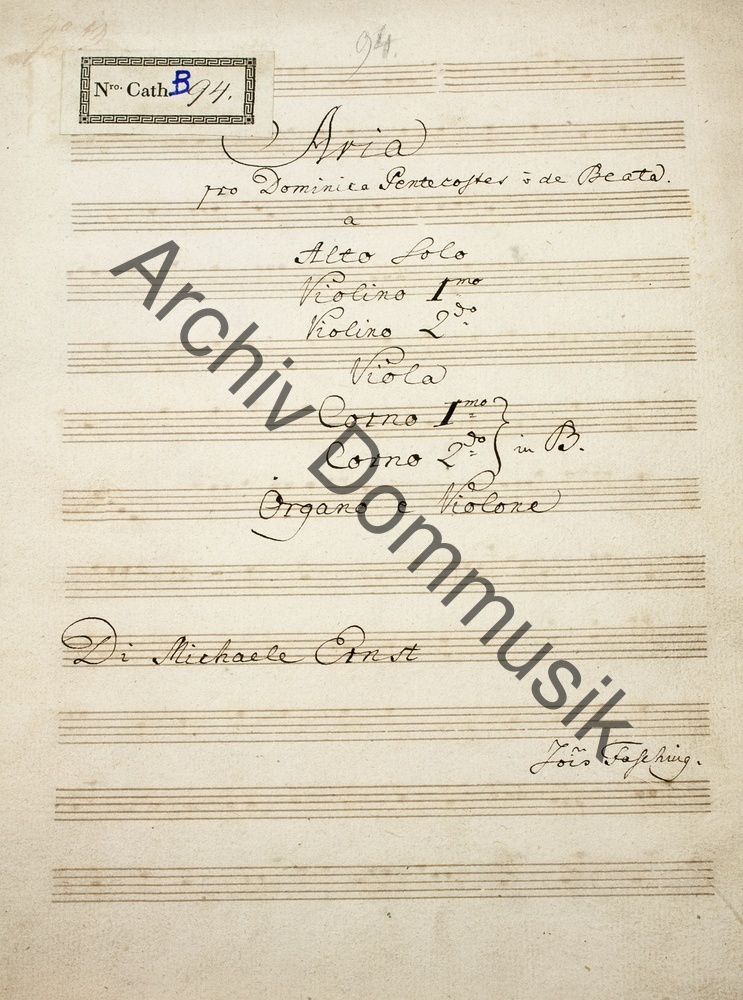 94.
Nro. Cath. B 94.
Aria
pro Dominica Pentecostes ò de Beata.
a
Alto Solo
Violino 1mo
Violino 2do
Viola
Corno 1mo
Corno 2do } in B.
Organo e Violone
Di Michaele Ernst
Jois Fasching.
Archiv Dommusik